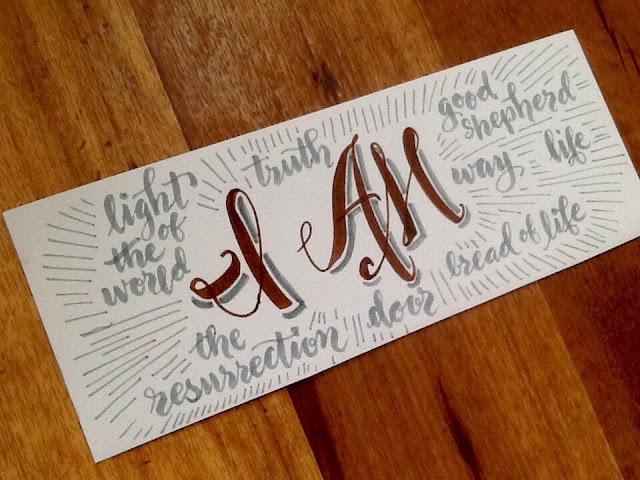 light
of
the
world
truth
I AM
good
shepherd
way
life
bread of life
door
the
resurrection